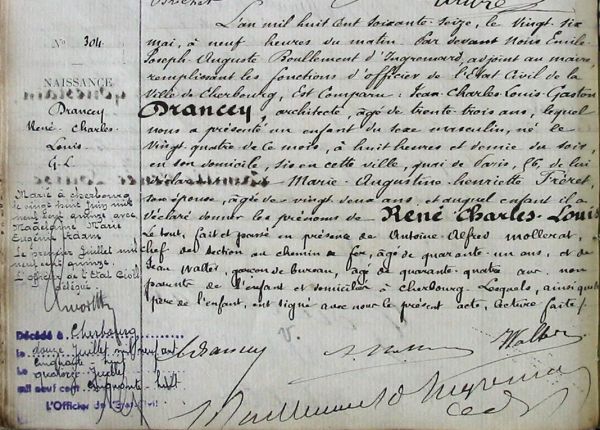 L'an mil huit cent soixante-seize, le vingt-six
mai, à neuf heures du matin Par devant Nous Emile
Joseph-Auguste Boullement d'Ingremard, adjoint au maire,
remplissant les fonctions d'officier de l'Etat Civil de la
Ville de Cherbourg, Est Comparu: Jean-Charles-Louis-Gaston
Drancey, architecte, âgé de trente-trois ans, lequel
nous a présenté un enfant du sexe masculin, né le
vingt-quatre de ce mois, à huit heures et demie du soir,
en son domicile, sis en cette ville, quai de Paris, 56, de lui
déclarant et de Marie-Augustine-henriette Fréret,
son épouse, âgée de vingt-deux ans, et auquel enfant il a
déclaré donner les prénoms de René-Charles-Louis
Le tout, fait et passé en présence de Antoine-Alfred Mollerat,
chef de section au chemin de fer, âgé de quarante-un ans, et de
Jean Walter, garçon de bureau, âgé de quarante-quatre ans non
parents de l'enfant et domiciliés à Cherbourg. Lesquels, ainsi que le
père de l'enfant, ont signé avec nous le présent acte, lecture faite.
N° 304
NAISSANCE
Drancey
René-Charles-
Louis
G-L
Marié à Cherbourg
le vingt huit juin mil
neuf cent quinze avec
Madame Marie
Eugénie Adam
Le premier Juillet mil
neuf cent quinze.
L'officier de l'Etat Civil
délégué.
Décédé à Cherbourg
le douze Juillet mil neuf cent
cinquante huit
Le quatorze Juillet
mil neuf cent cinquante huit
L'Officier de l'Etat-Civil
Drancey
Walter
Boullement d'Ingremard